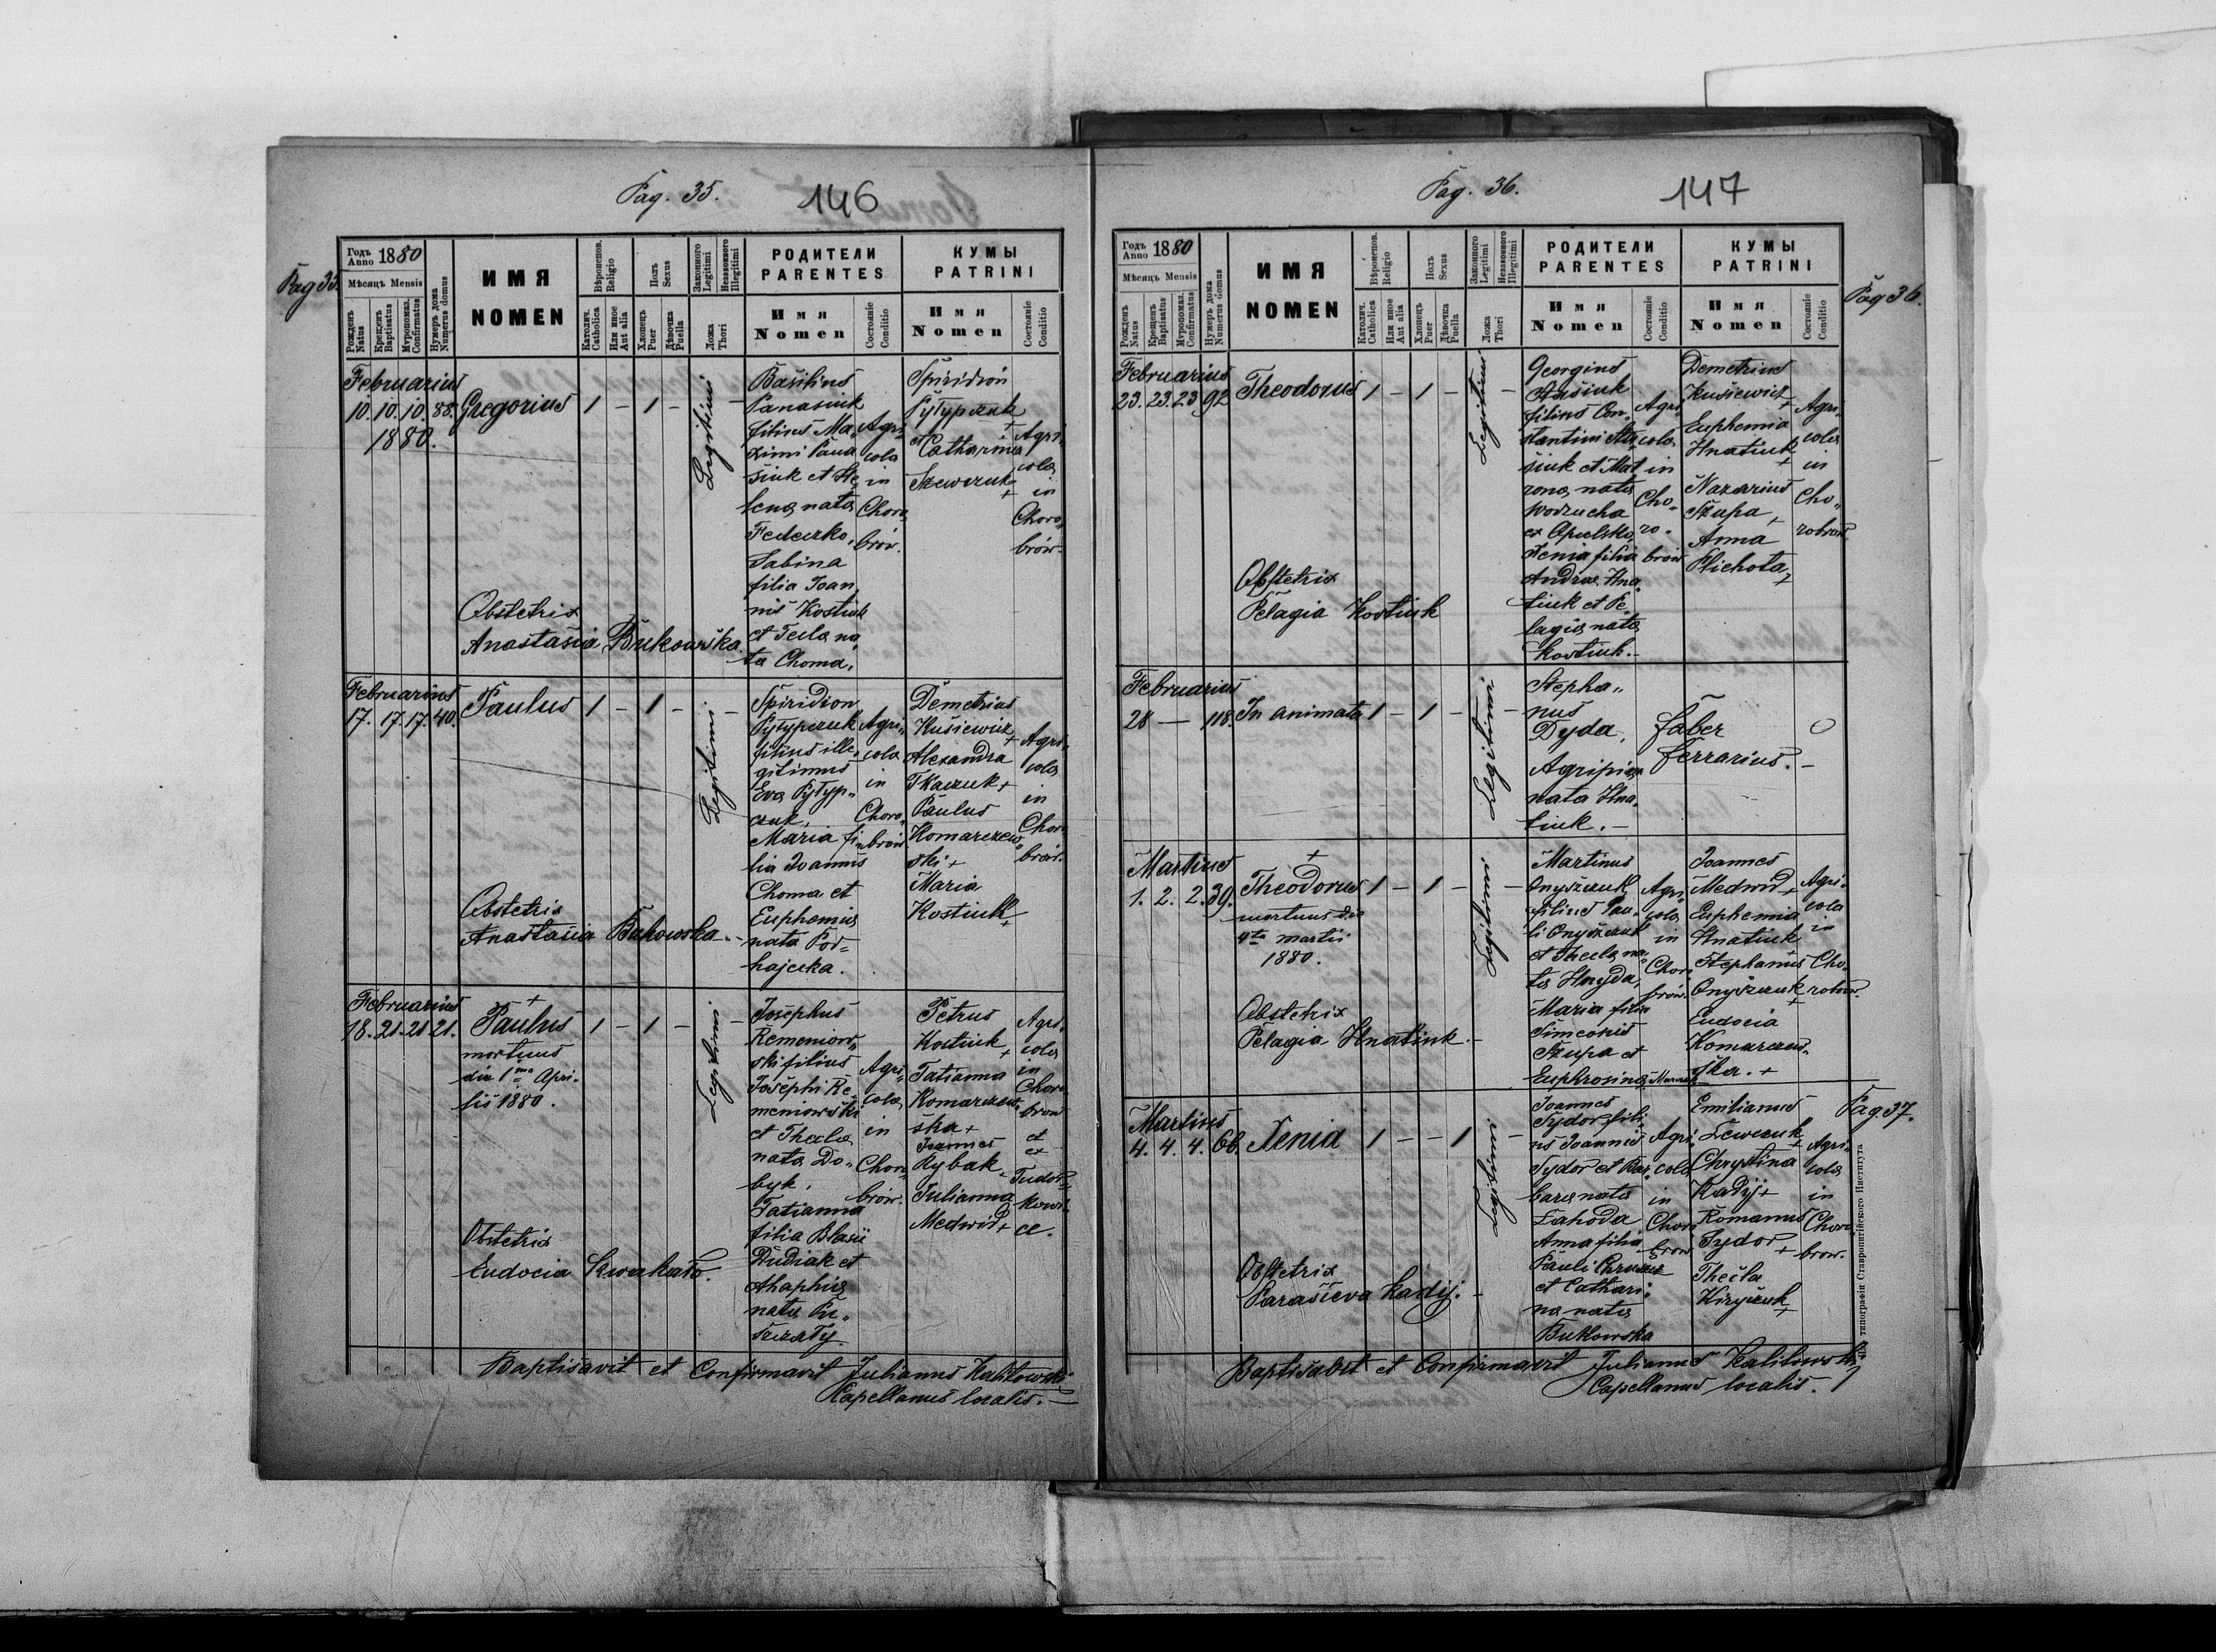 Pag. 35. 146
Pag 35.
Годъ Anno 1880
Мѣсяцъ Mensis
Рожденъ Natus
Крещенъ Baptisatus
Мѵропомаз. Confirmatus
Нумеръ дома Numerus domus
ИМЯ
NOMEN
Вѣроиспов. Religio
Католич. Catholica
Или иное Aut alia
Полъ Sexus
Хлопецъ Puer
Дѣвочка Puella
Законного Legitimi
Незаконного Illegitimi
Ложа Thori
РОДИТЕЛИ
PARENTES
Имя
Nomen
Состояніе Conditio
КУМЫ
PATRINI
Имя
Nomen
Состояніе Conditio
Februarius
10. 10. 10. 88.
1880.
Gregorius
1 – 1 –
Legitimi
Basilius
Panasiuk
filius Ma„
ximi Pana
siuk et He„
lena nata
Fedeczko,
Sabina
filia Joan„
nis Kostiuk
et Tecla na„
ta Choma.
Agri„
cola
in
Choro„
brów.
Spiridion
Pytypczuk
+
et Catharina
Szewczuk
+
Agri„
cola
in
Choro„
brów.
Obstetrix
Anastasia Bukowska.
Februarius
17. 17. 17. 40.
Paulus
1 – 1 – –
Legitimi
Spiridion
Pytypczuk
filius ille„
gitimus
Eva Pytyp„
czuk,
Maria fi„
lia Joannis
Choma et
Euphemia
nata Pod=
hajecka.
Agri„
cola
in
Choro„
brów
Demetrius
Kusiewicz
+
Alexandra
Tkaczuk +
Paulus
Komarzew„
ski +
Maria
Kostiuk
+
Agri„
cola
in
Choro
brów.
Obstetrix
Anastasia Bukowska.
Februarius
18. 21. 21 21.
+
Paulus
mortuus
die 1ma Apri„
lis 1880.
1 – 1 – –
Legitimi
Josephus
Remeniow„
ski filius
Josephi Re„
meniowski
et Thecla
nata Do„
byk.
Tatianna
filia Blasii
Dudiak et
Ahaphia
nata
Agri„
cola
in
Choro
brów.
Petrus
Kostiuk
+
Tatianna
Komarzew„
ska +
Joannes
Rybak
Julianna
Medwid +
Agri„
cola
in
Choro
brów
et
ex
Tudor„
kowi„
ce.
Obstetrix
Eudocia
Baptisavit et Confirmavit Julianus Kalitowski
Capellanus localis.
Pag. 36. 147
Pag 36.
Годъ Anno 1880
Мѣсяцъ Mensis
Рожденъ Natus
Крещенъ Baptisatus
Мѵропомаз. Confirmatus
Нумеръ дома Numerus domus
ИМЯ
NOMEN
Вѣроиспов. Religio
Католич. Catholica
Или иное Aut alia
Полъ Sexus
Хлопецъ Puer
Дѣвочка Puella
Законного Legitimi
Незаконного Illegitimi
Ложа Thori
РОДИТЕЛИ
PARENTES
Имя
Nomen
Состояніе Conditio
КУМЫ
PATRINI
Имя
Nomen
Состояніе Conditio
Februarius
23. 23. 23 92
Theodorus
1 – 1 – –
Legitimi
Georgius
Stasiuk
filius Con„
stantini Sta„
siuk et Mat
rona nata
Wodzucha
ex Opulsko,
Xenia filia
Andreae Hna„
tiuk et Pe„
lagia nata
Kostiuk.–
Agri
cola
in
Cho„
ro„
brów
Demetrius
Kusiewicz
+
Euphemia
Hnatiuk
+
Nazarius
Szupa
+
Anna
Plichota
+
Agri„
cola
in
Cho„
robrów.
Obstetrix
Pelagia Kostiuk
Februarius
28 — 118.
In animata
1 – 1 – –
Legitimi
Stepha„
nus
Dyda,
Agripina
nata Hna„
tiuk.–
faber
ferrarius.
Martius
1. 2. 2. 39.
+
Theodorus
mortuus die
4ta martii
1880.
1 – 1 – –
Legitimi
Martinus
Onyszczuk
filius Pau„
li Onyszczuk
et Thecla na„
ta Hnyda,
Maria filia
Simeonis
Szupa et
Euphrosina
Agri„
cola
in
Choro
brów.
Joannes
Medwid
+
Euphemia
Hnatiuk
Stephanus
Onyszczuk
+
Eudocia
Komarzew„
ska. +
Agri„
cola
in
Cho„
robrów.
Obstetrix
Pelagia Hnatiuk.–
Pag. 37.
Martius
4. 4. 4. 66.
Xenia
1 – – 1 –
Legitimi
Joannes
Sydor fili„
us Joannis
Sydor et Bar„
bara nata
Lahoda
Anna filia
Pauli
et Cathari„
na nata
Bukowska
Agri„
cola
in
Choro
brów
Emilianus
Lewczuk
+
Chrystina
Kadij +
Romanus
Sydor
+
Thecla
Kiryczuk
+
Agri„
cola
in
Choro
brów.
Obstetrix
Parasceva Kadij.–
Baptisavit et Confirmavit Julianus Kalitowski
Capellanus localis.
Изъ типографіи Ставропигійского Института